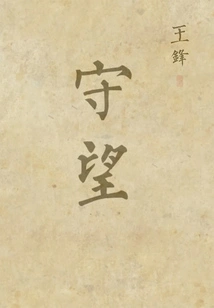 守望
王鋒